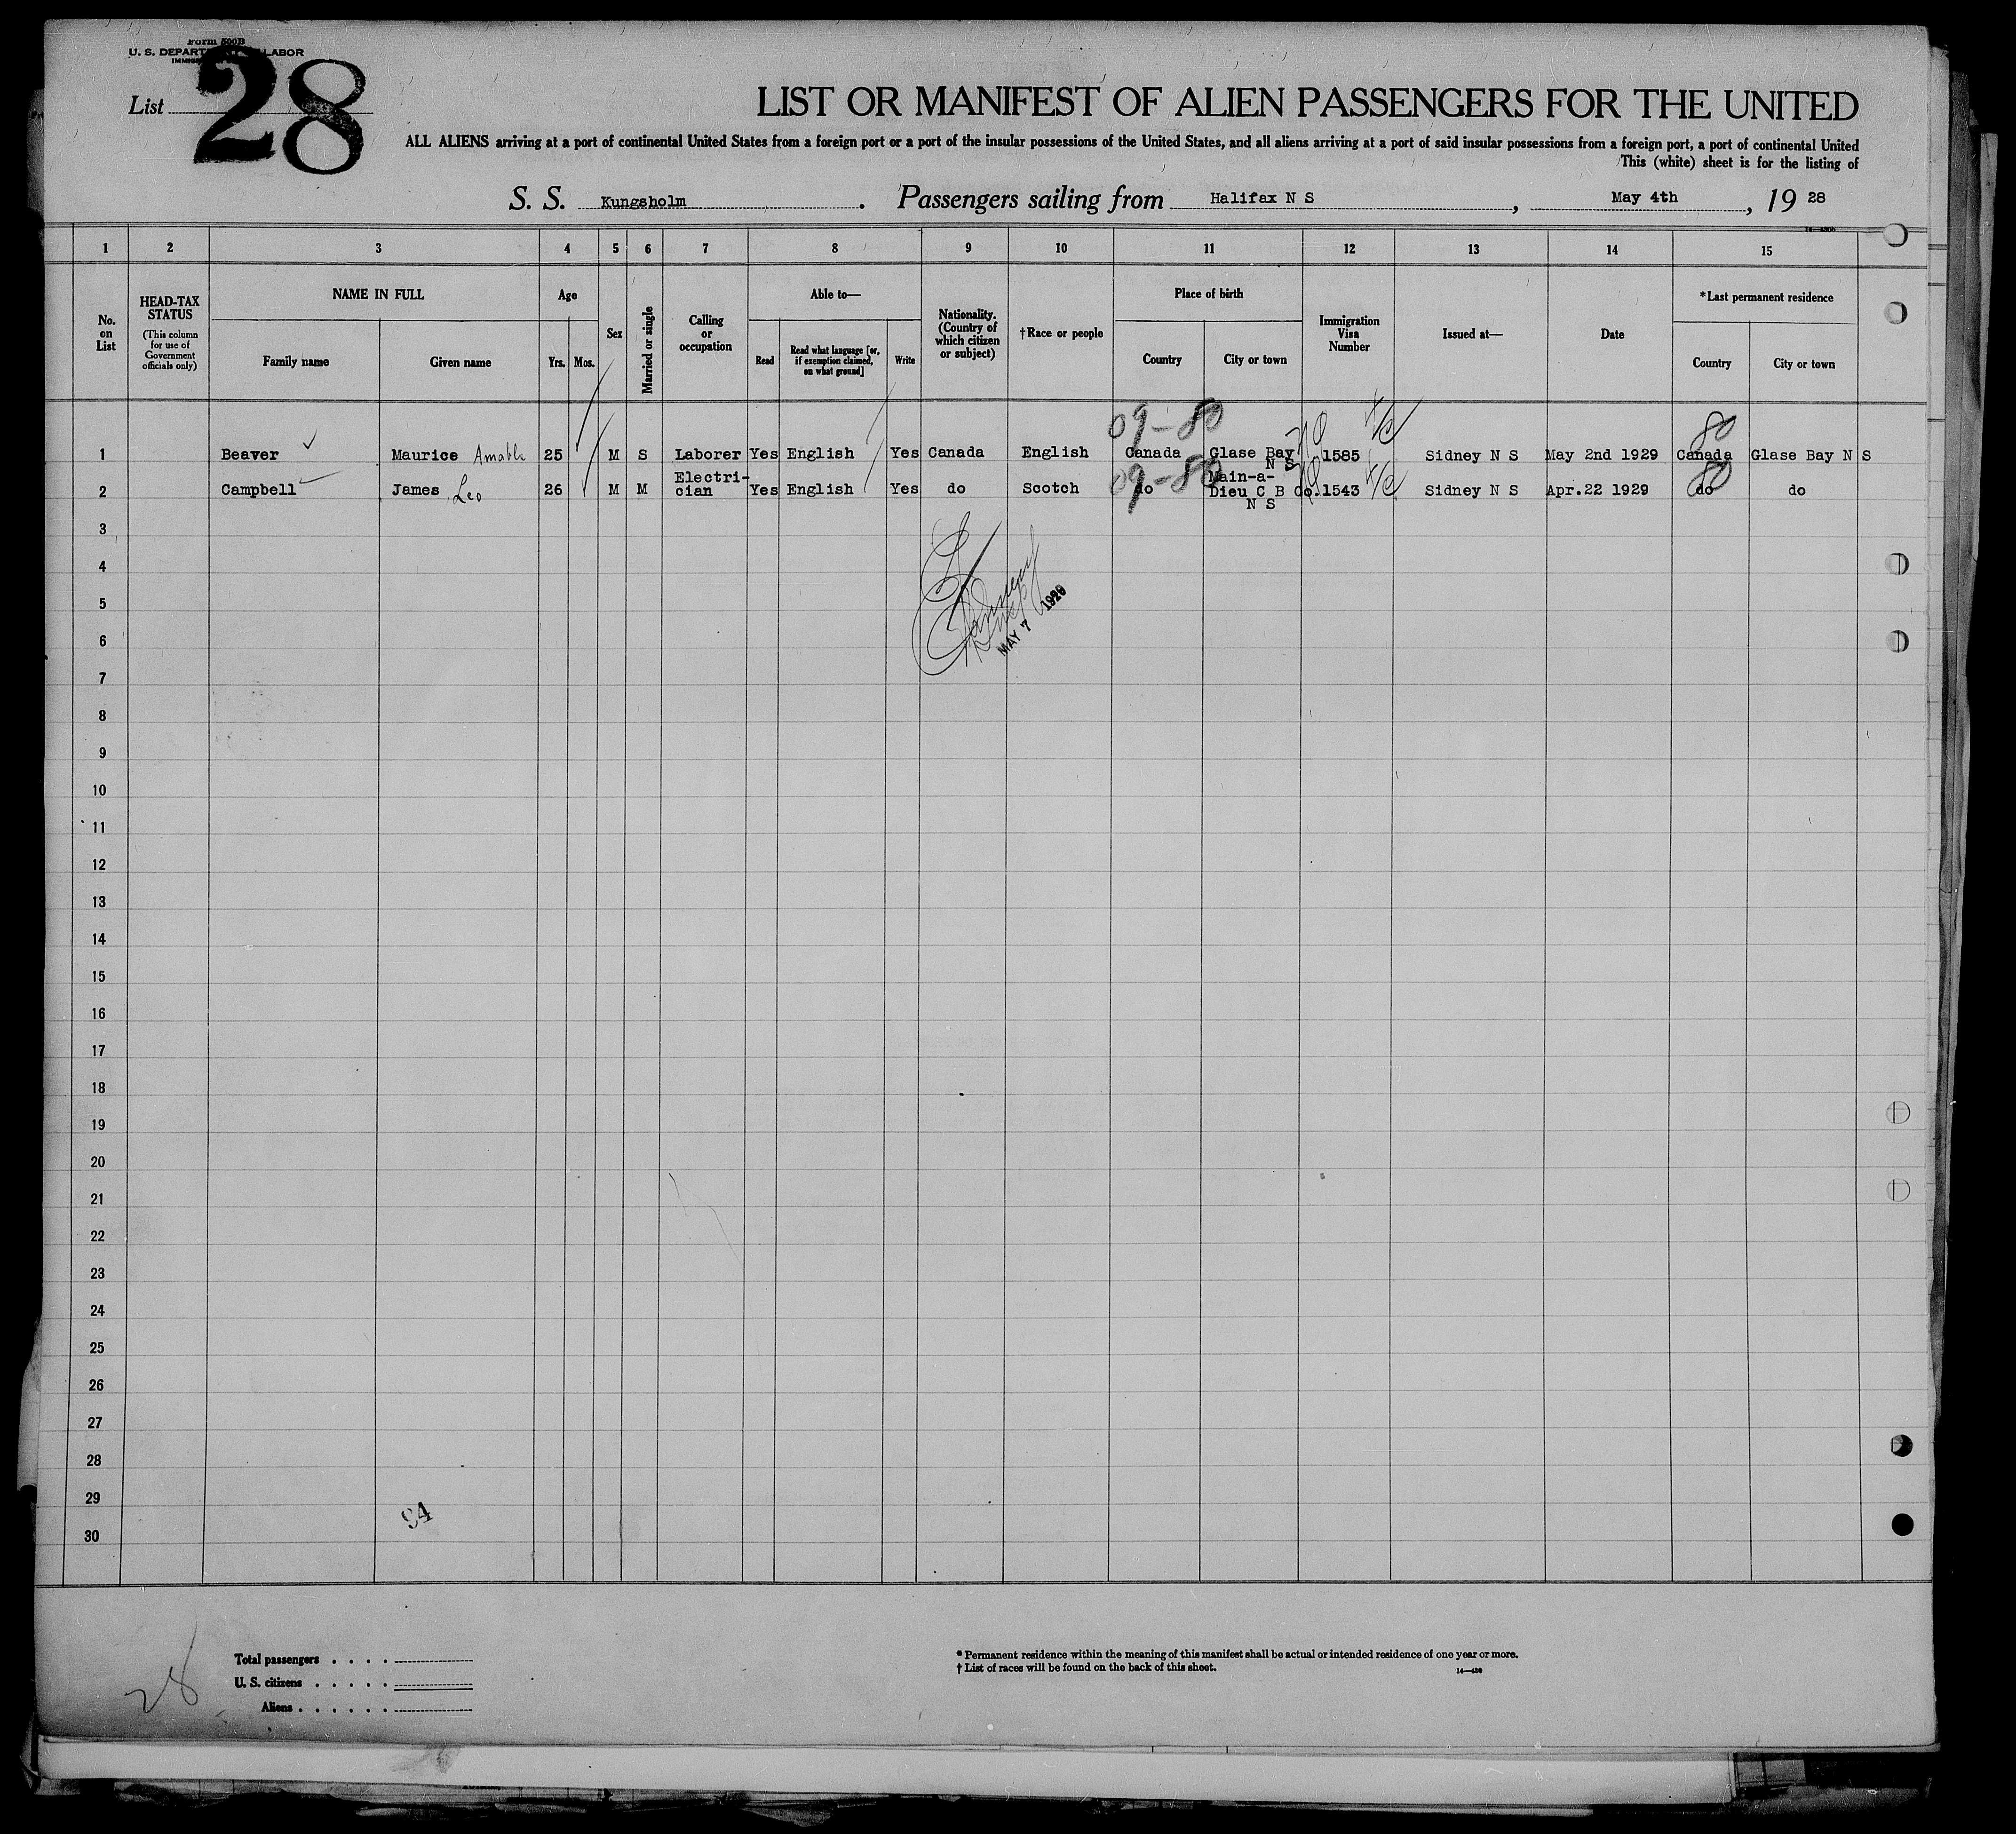 Form 500B
U. S. DEPARTMENT OF LABOR
List 28
LIST OR MANIFEST OF ALIEN PASSENGERS FOR THE UNITED
ALL ALIENS arriving at a port of continental United States from a foreign port or a port of the insular possessions of the United States, and all aliens arriving at a port of said insular possessions from a foreign port, a port of continental United
This (white) sheet is for the listing of
S. S. Kungsholm . Passengers sailing from Halifax N S , May 4th , 19 28
1 2 3 4 5 6 7 8 9 10 11 12 13 14 15
No. on List
HEAD-TAX STATUS
(This column for use of Government officials only)
NAME IN FULL
Family name Given name
Age
Yrs. Mos.
Sex
Married or single
Calling or occupation
Able to—
Read Read what language [or, if exemption claimed, on what ground] Write
Nationality. (Country of which citizen or subject)
†Race or people
Place of birth
Country City or town
Immigration Visa Number
Issued at—
Date
*Last permanent residence
Country City or town
09-80 80
1 Beaver Maurice Amable 25 M S Laborer Yes English Yes Canada English Canada Glase Bay N S 1585 Sidney N S May 2nd 1929 Canada Glase Bay N S
09-80 80
2 Campbell James Leo 26 M M Electri-cian Yes English Yes do Scotch do Main-a-Dieu C B Co. N S 1543 Sidney N S Apr.22 1929 do do
3
4
5
MAY 7
6
7
8
9
10
11
12
13
14
15
16
17
18
19
20
21
22
23
24
25
26
27
28
29
94
30
28
Total passengers . . . .
U. S. citizens . . . . .
Aliens . . . . . .
* Permanent residence within the meaning of this manifest shall be actual or intended residence of one year or more.
† List of races will be found on the back of this sheet.